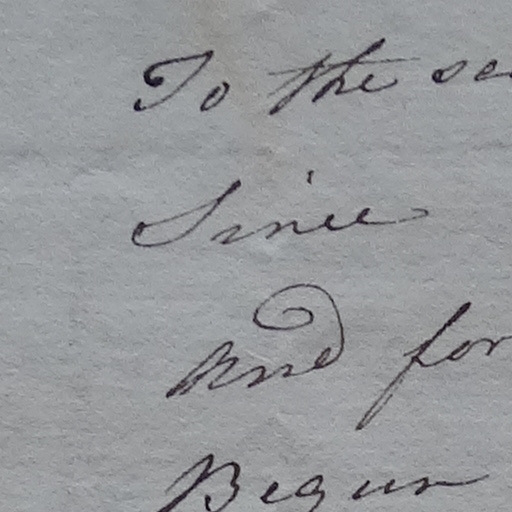 To the
Since
And for
Begun